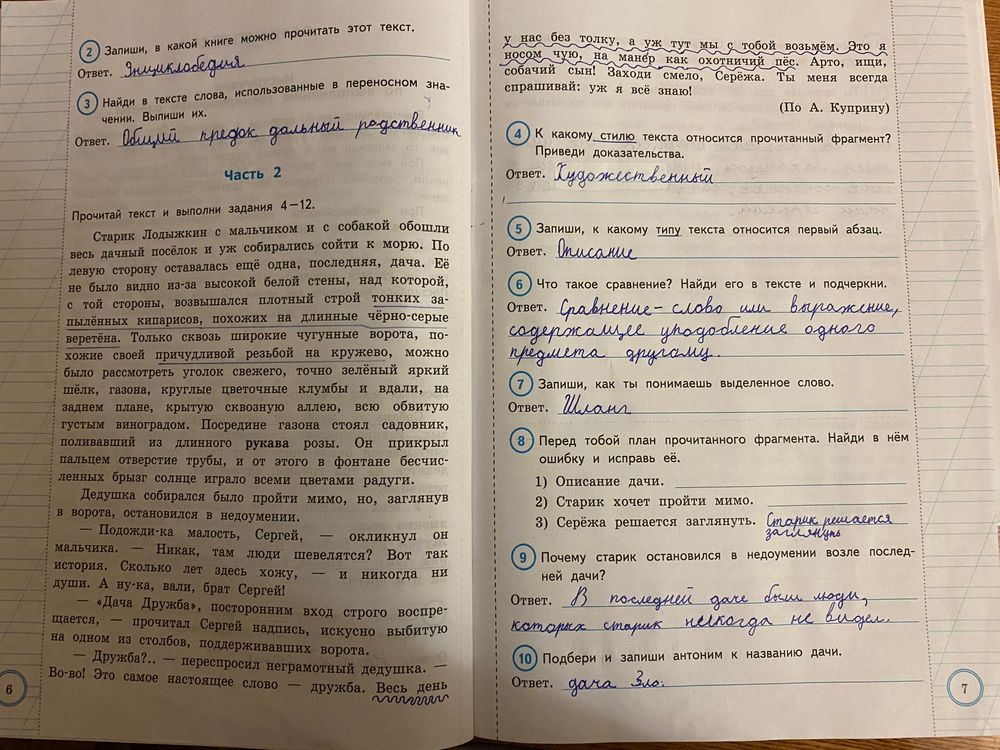 2 Запиши, в какой книге можно прочитать этот текст.
Ответ. Энциклобедия
3 Найди в тексте слова, использованные в переносном зна-
чении. Выпиши их.
Ответ. Общий предок дальный родственник
Часть 2
Прочитай текст и выполни задания 4—12.
Старик Лодыжкин с мальчиком и с собакой обошли
весь дачный посёлок и уж собирались сойти к морю. По
левую сторону оставалась ещё одна, последняя, дача. Её
не было видно из-за высокой белой стены, над которой,
с той стороны, возвышался плотный строй тонких за-
пылённых кипарисов, похожих на длинные чёрно-серые
веретёна. Только сквозь широкие чугунные ворота, по-
хожие своей причудливой резьбой на кружево, можно
было рассмотреть уголок свежего, точно зелёный яркий
шёлк, газона, круглые цветочные клумбы и вдали, на
заднем плане, крытую сквозную аллею, всю обвитую
густым виноградом. Посредине газона стоял садовник,
поливавший из длинного рукава розы. Он прикрыл
пальцем отверстие трубы, и от этого в фонтане бесчис-
ленных брызг солнце играло всеми цветами радуги.
Дедушка собирался было пройти мимо, но, заглянув
в ворота, остановился в недоумении.
— Подожди-ка малость, Сергей, — окликнул он
мальчика. — Никак, там люди шевелятся? Вот так
история. Сколько лет здесь хожу, — и никогда ни
души. А ну-ка, вали, брат Сергей!
— «Дача Дружба», посторонним вход строго воспре-
щается, — прочитал Сергей надпись, искусно выбитую
на одном из столбов, поддерживавших ворота.
— Дружба?.. — переспросил неграмотный дедушка. —
Во-во! Это самое настоящее слово — дружба. Весь день
6
у нас без толку, а уж тут мы с тобой возьмём. Это я
носом чую, на манер как охотничий пёс. Арто, ищи,
собачий сын! Заходи смело, Серёжа. Ты меня всегда
спрашивай: уж я всё знаю!
(По А. Куприну)
4 К какому стилю текста относится прочитанный фрагмент?
Приведи доказательства.
Ответ. Художественный
5 Запиши, к какому типу текста относится первый абзац.
Ответ. Описание
6 Что такое сравнение? Найди его в тексте и подчеркни.
Ответ. Сравнение - слово или выражение,
содержащее уподобление одного
предмета другому.
7 Запиши, как ты понимаешь выделенное слово.
Ответ. Шланг
8 Перед тобой план прочитанного фрагмента. Найди в нём
ошибку и исправь её.
1) Описание дачи.
2) Старик хочет пройти мимо.
3) Серёжа решается заглянуть. Старик решается
заглянуть
9 Почему старик остановился в недоумении возле послед-
ней дачи?
Ответ. В последней даче были люди,
которых старик никогда не видел.
10 Подбери и запиши антоним к названию дачи.
Ответ. дача Зло.
7